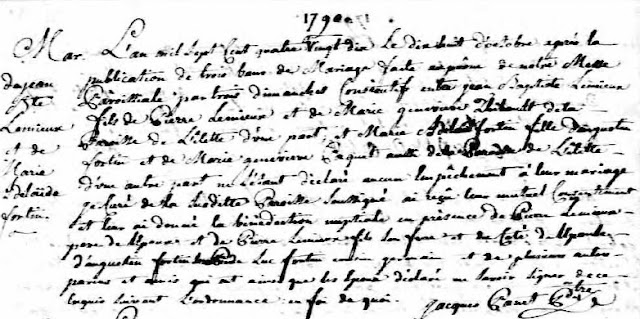 1790
Mar. L'an mil sept cent quatre vingt dix le dixhuit d'octobre après la
de jean publication de trois bans de Mariage faite au prône de notre Messe
Bte Paroissiale par trois dimanches Consécutifs entre jean Baptiste Lemieux
Lemieux fils de Pierre Lemieux et de Marie genevieve Thibault de la
et de Paroisse de L'islette d'une part, et Marie fortin fille d'augustin
Marie fortin et de Marie genevieve Paquet aussi de la Paroisse de L'islette
adelaïde d'une autre part ne s'étant déclaré aucun Empêchement à leur mariage
fortin. je Curé de la susditte Paroisse soussigné ai reçu leur mutuel Consentement
et leur ai donné la bénédiction nuptiale en présence de Pierre Lemieux
pere de l'époux et de Pierre Lemieux fils son frere et du Coté de l'épouse
d'augustin fortin de Luc fortin cousin germain et de plusieurs autres
parens et amis qui ont ainsi que les époux déclaré ne savoir signer de ce
requis suivant l'ordonnance en foi de quoi.
jacques Panet Ptre